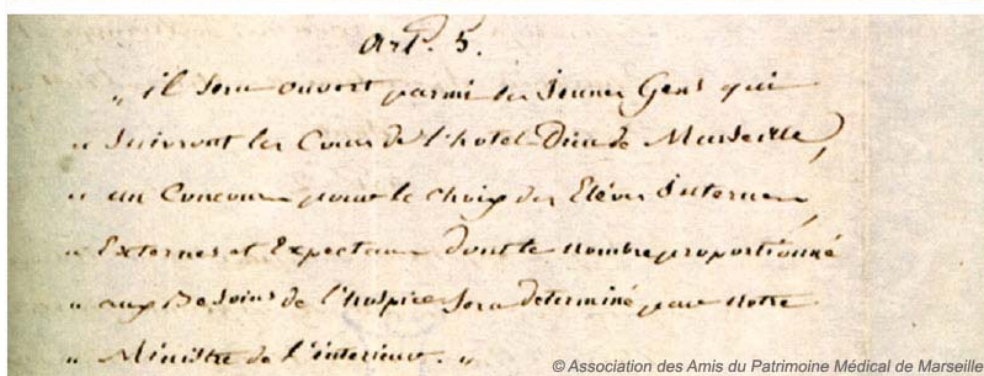 Art. 5.
" il sera ouvert parmi les Jeunes Gens qui
" Suivront les Cours de l'hotel-Dieu de Marseille,
" un Concours pour le choix des Elèves Internes,
" Externes et Expectans dont le nombre proportionné
" aux Besoins de l'hospice sera determiné par notre
" Ministre de l'interieur. "
© Association des Amis du Patrimoine Médical de Marseille